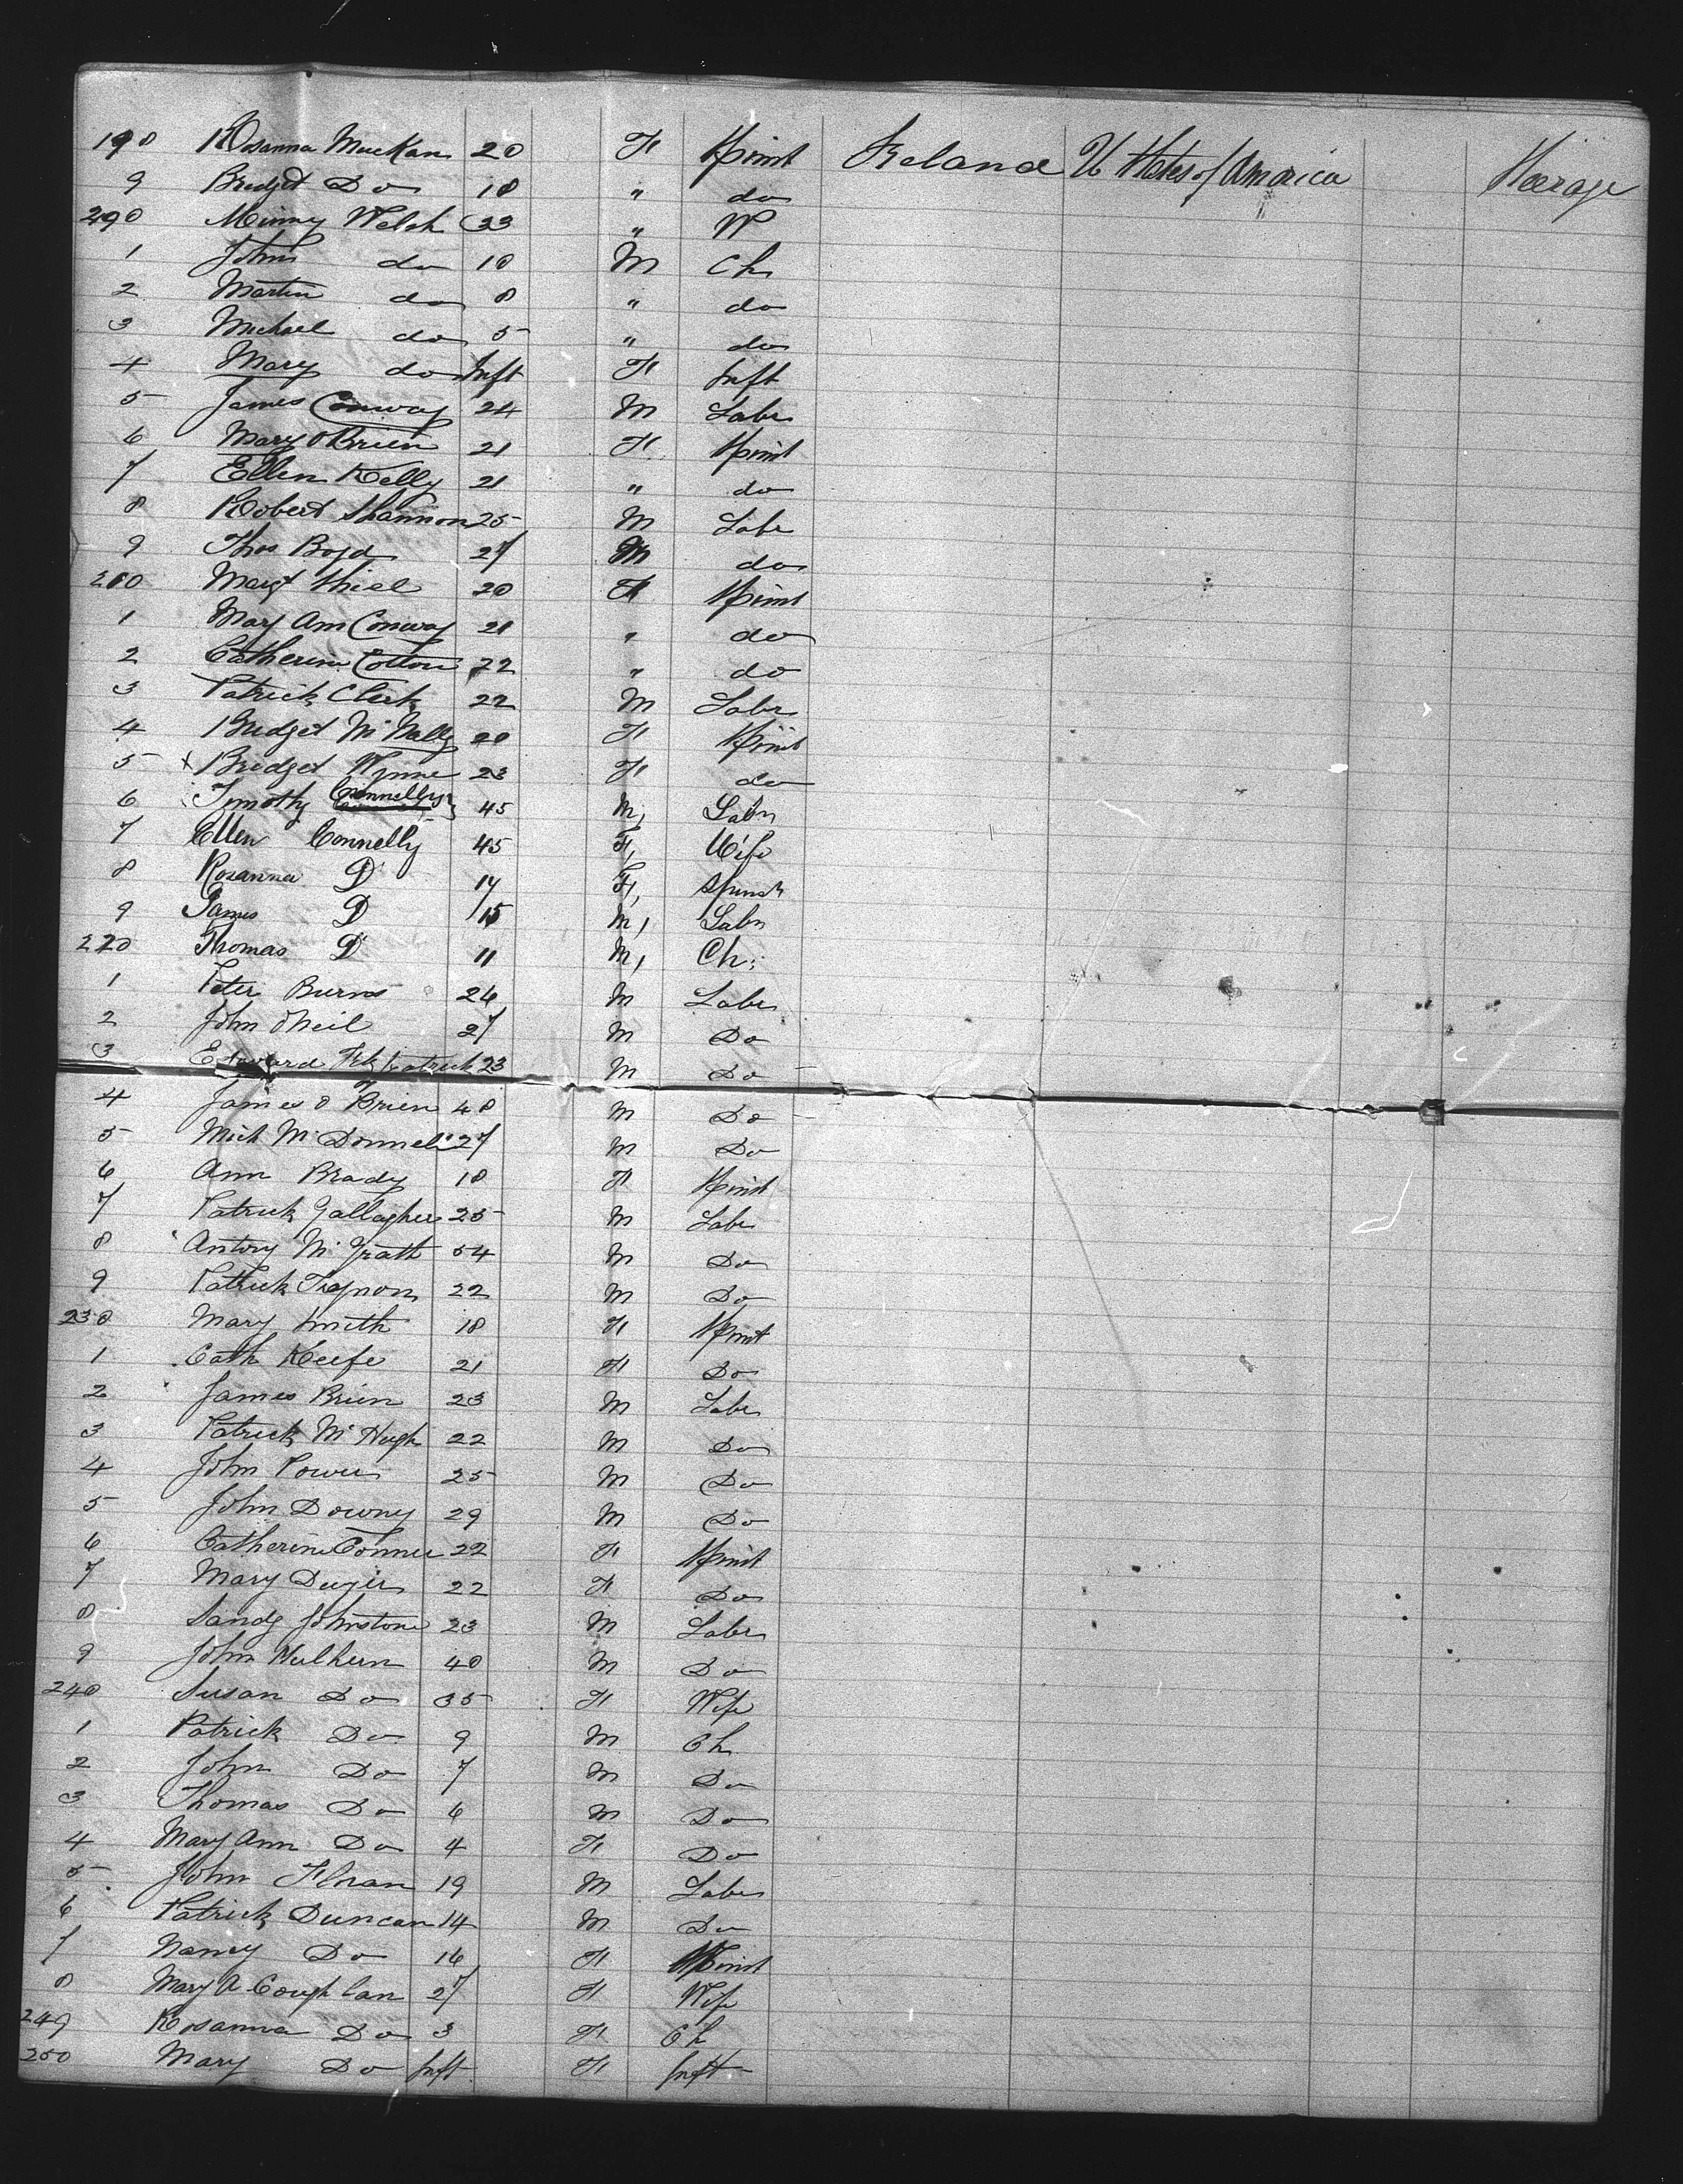 198 Rosanna MucKan 20 F Spinst Ireland U States of America Steerage
9 Bridget Do 18 " do
200 Minny Welsh 33 " W
1 John do 10 M Ch
2 Martin do 8 " do
3 Michael do 5 " do
4 Mary do Inft F Inft
5 James Conway 24 M Labr
6 Mary O Brien 21 F Spinst
7 Ellen Kelly 21 " do
8 Robert Shannon 25 M Labr
9 Thos Boyd 27 M do
210 Margt Shiel 20 F Spinst
1 Mary Ann Conway 21 " do
2 Catherine Cotton 22 " do
3 Patrick Clerk 22 M Labr
4 Bridget McNally 20 F Spinst
5 x Bridget Wynne 23 F do
6 Timothy Connelly 45 M, Labr
7 Ellen Connelly 45 F, Wife
8 Rosanna D 17 F, Spinst
9 James D 15 M, Labr
220 Thomas D 11 M, Ch:
1 Peter Burns 26 M Labr
2 John ONeil 27 M Do
3 Edward Fitzpatrick 23 M Do
4 James O Brien 40 M Do
5 Mich McDonnell 27 M Do
6 Ann Brady 18 F Spinst
7 Patrick Gallagher 25 M Labr
8 Antony McGrath 54 M Do
9 Patrick 22 M Do
230 Mary Smith 18 F Spinst
1 Cath Keefe 21 F Do
2 James Brien 23 M Labr
3 Patrick McHugh 22 M Do
4 John Power 25 M Do
5 John Downy 29 M Do
6 Catherine Conner 22 F Spinst
7 Mary 22 F Do
8 Sandy Johnstone 23 M Labr
9 John Mulhern 40 M Do
240 Susan Do 35 F Wife
1 Patrick Do 9 M Ch
2 John Do 7 M Do
3 Thomas Do 6 M Do
4 Mary Ann Do 4 F Do
5 John 19 M Labr
6 Patrick Duncan 14 M Do
7 Nancy Do 16 F Spinst
8 Mary A Coughlan 27 F Wife
249 Rosanna Do 3 F Ch
250 Mary Do Inft F Inft